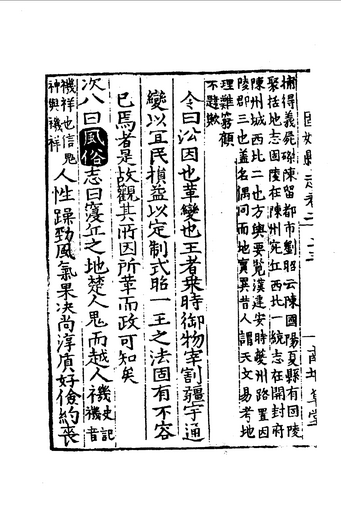 捕得義兄磔陳留都市劉昭云陳國陽夏縣有固陵
聚括地志固陵在陳州宛丘西北一統志在開封府
陳州城西北二也方輿要覽漢建安時夔州路置固
陵郡三也蓋名偶同而地實異昔人謂天文易考地
理難窮顧
不韙歟
令曰沿因也革變也王者乘時御物宰割疆宇通
變以宜民損益以定制式昭一王之法固有不容
已焉者是故觀其所因所革而政可知矣
次八曰風俗志曰寖丘之地楚人鬼而越人禨史記禨音
禨祥也信鬼神與禨祥人性躁勁風氣果决尚淳質好儉約喪